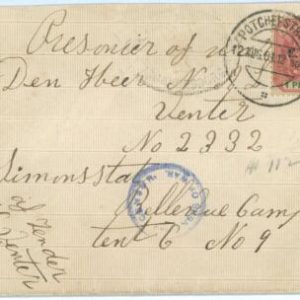 Presonier of
Den Heer N
Venter
No 2332
Simonstat
Bellevue Camp
tent C No 9
POTCHEFST
# 112
Venter